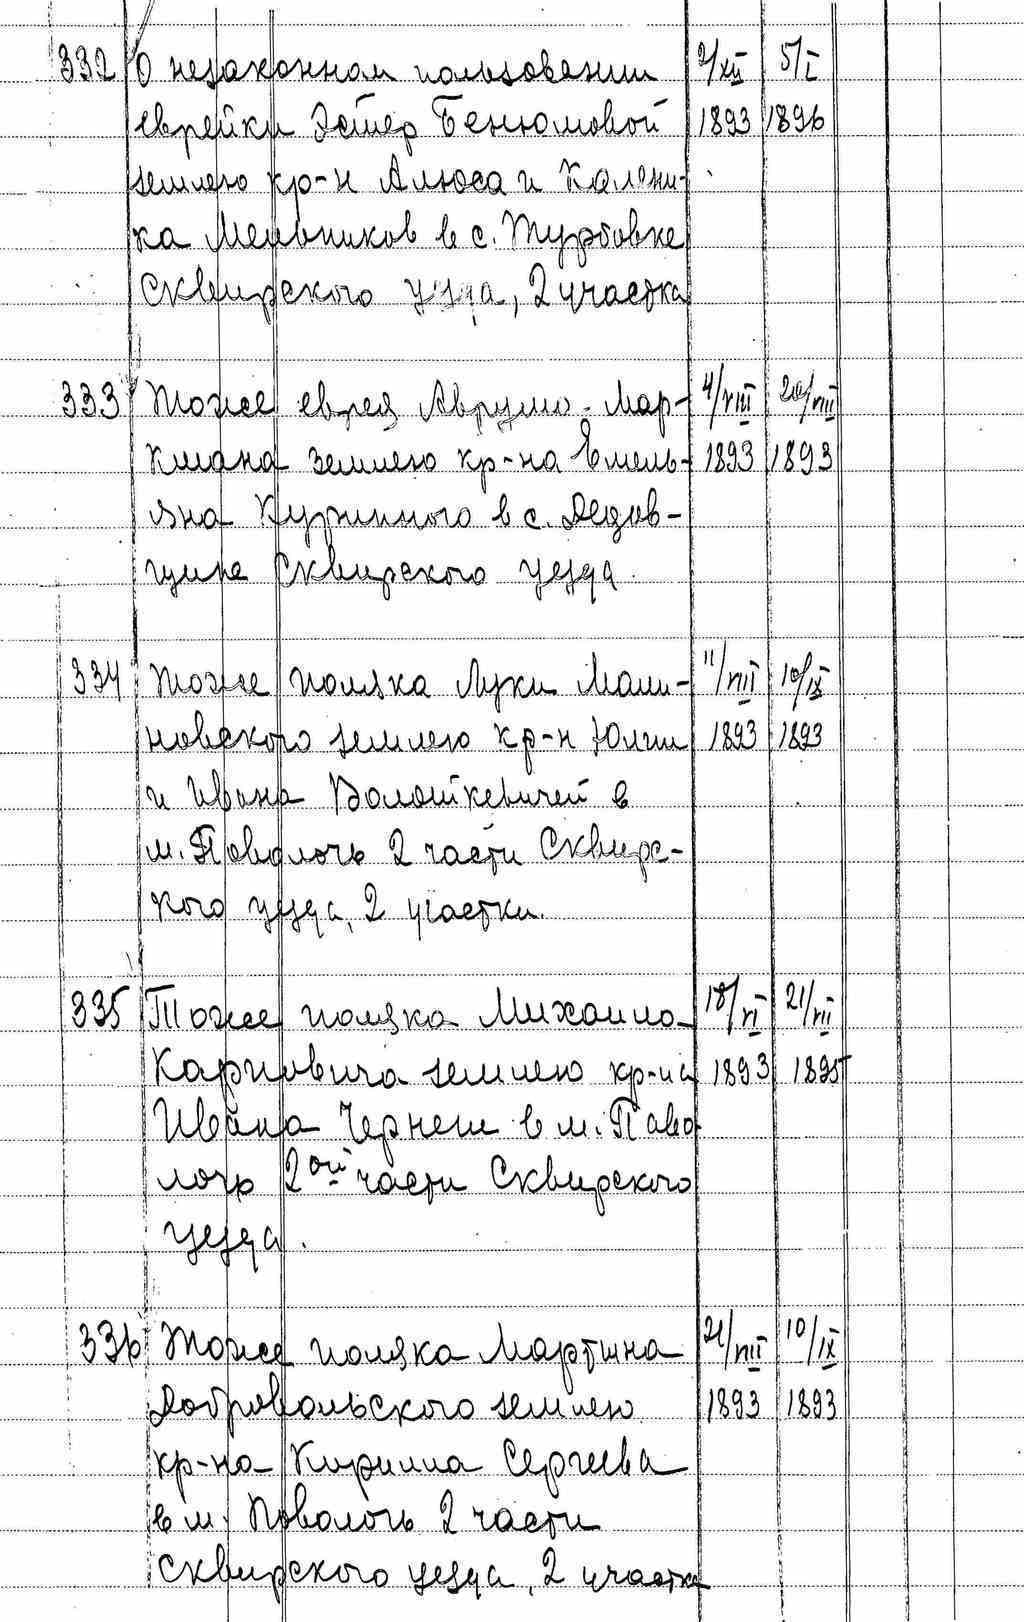 332 О незаконном пользовании 2/XII 5/I
еврейки Эстер Бенюмовой 1893 1896
землею кр-н Алюса и Калени-
ка Мельников в с. Турбовке
Сквирского уезда, 2 участка
333 Тоже еврея Аврумо-Мар- 4/VIII 20/VIII
кмана землею кр-на Емель- 1893 1893
яна в с. Дедов-
щине Сквирского уезда.
334 Тоже поляка Луки Мали- 11/VIII 10/IX
новского землею кр-н Юлии 1893 1893
и Ивана Волошкевичей в
м. Паволочь 2 части Сквирс-
кого уезда, 2 участки.
335 Тоже поляка Михаила 18/VI 21/VII
Карповича землею кр-на 1893 1895
Ивана Чернеш в м. Паво
лочь 2ой части Сквирского
уезда.
336 Тоже поляка Мартина 21/VIII 10/IX
Добровольского землею 1893 1893
кр-на Кирилла Сергеева
в м. Паволочь 2 части
Сквирского уезда, 2 участка